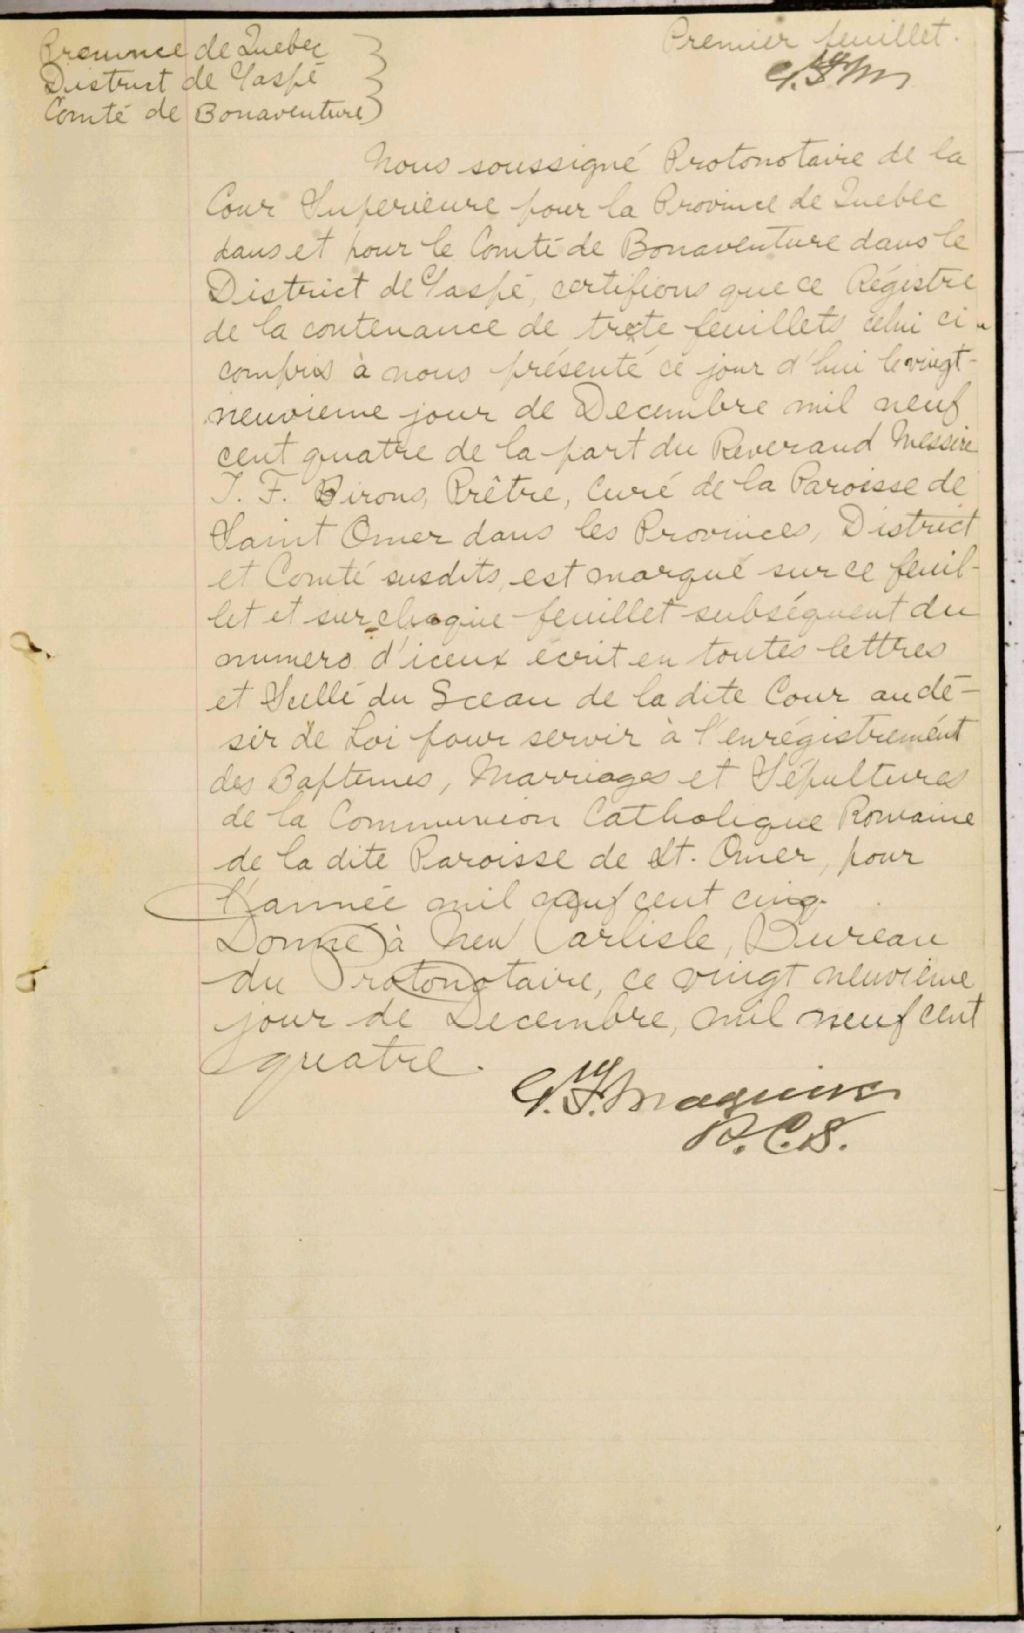 Province de Quebec
District de Gaspé
Comté de Bonaventure
Premier feuillet.
Nous soussigné Protonotaire de la
Cour Superieure pour la Province de Quebec
dans et pour le Comté de Bonaventure dans le
District de Gaspé, certifions que ce Régistre
de la contenance de trente feuillets celui ci-
compris à nous présenté ce jour d'hui le vingt-
neuvieme jour de Decembre mil neuf
cent quatre de la part du Reverand Messire
J. F. Birons, Prêtre, Curé de la Paroisse de
Saint Omer dans les Provinces, District
et Comté susdits, est marqué sur ce feuil-
let et sur chaque feuillet subséquent du
numero d'iceux écrit en toutes lettres
et Scellé du Sceau de la dite Cour au dé-
sir de Loi pour servir à l'enrégistrement
des Baptemes, Marriages et Sépultures
de la Communion Catholique Romaine
de la dite Paroisse de St. Omer, pour
l'année mil neuf cent cinq.
Donné à New Carlisle, Bureau
du Protonotaire, ce vingt neuvième
jour de Decembre, mil neuf cent
quatre.
P.C.S.